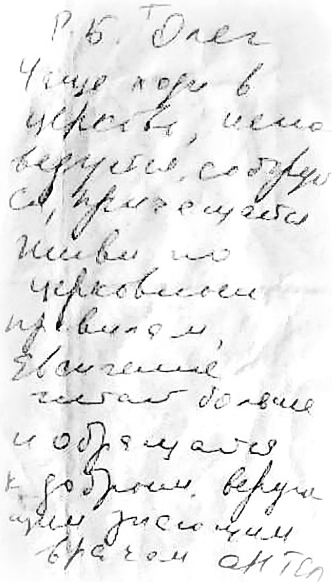 Р. Б. Олег
Чаще ходи в
церковь, испо
ведуйся, соборуй
ся, причащайся
живи по
церковным
правилам,
Евангелие
читай больше
и обращайся
к добрым, верую
щим знающим
врачам